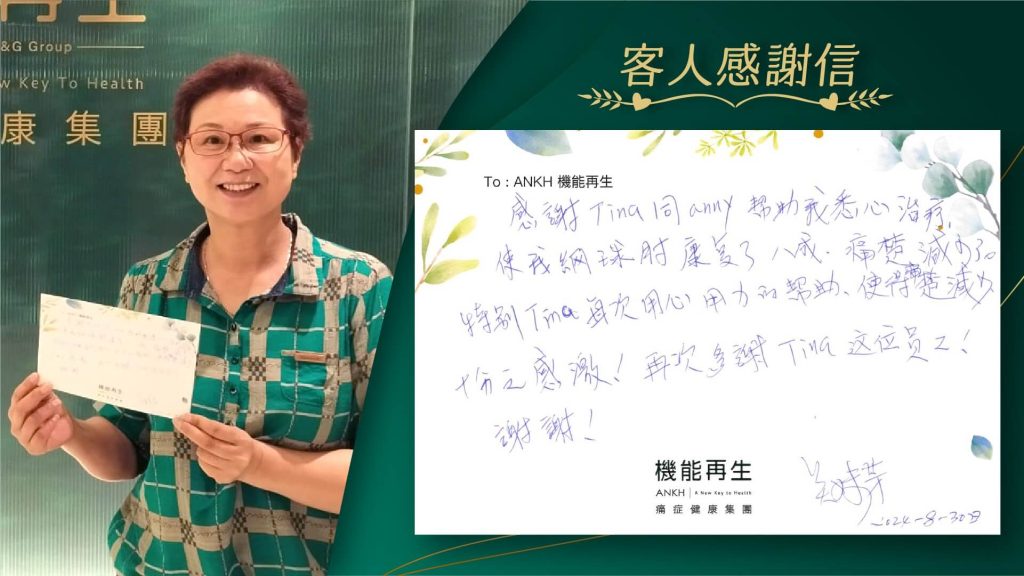 再生
&G Group
New Key To Health
康集團
機能再生
客人感謝信
To : ANKH 機能再生
感謝Tina同anny幫助我悉心治疗,
使我網球肘康复了八成.痛楚減少了。
特别Tina每次用心用力的幫助、使得痛楚減少
十分之感激!再次多謝Tina这位员工!
謝謝!
機能再生
ANKH | A New Key to Health
痛症健康集團
2024-8-30日